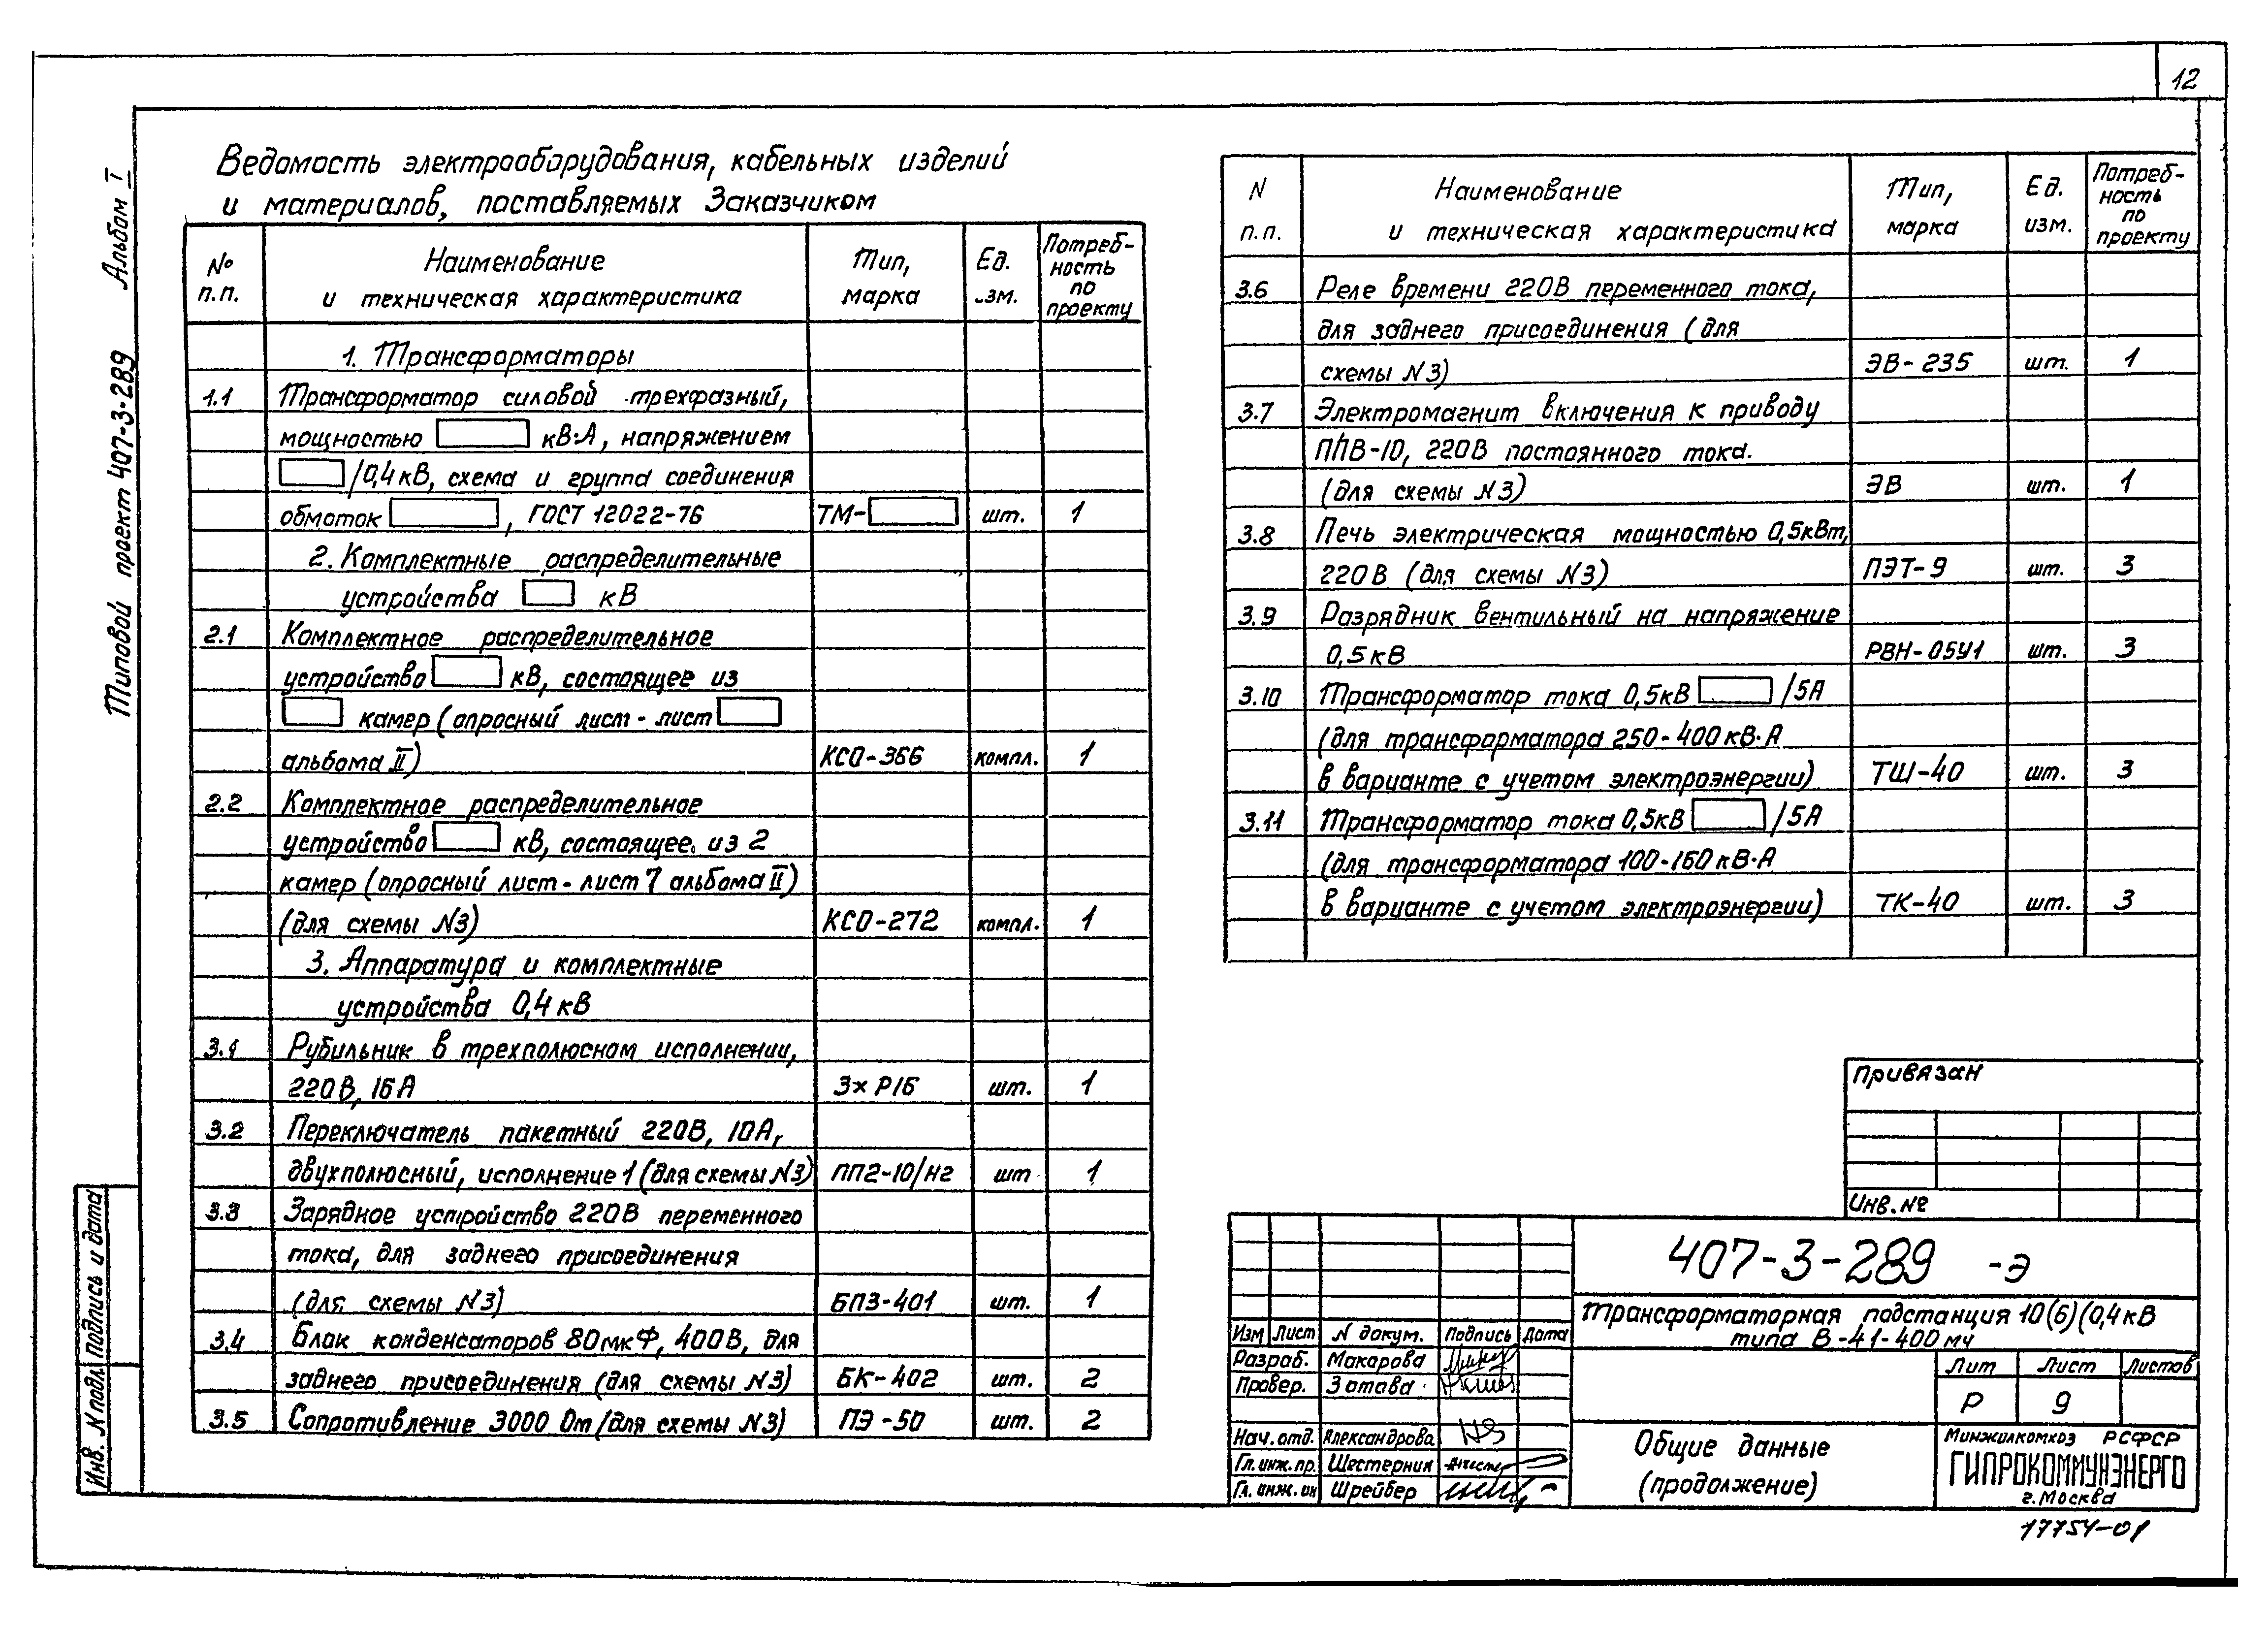 12
Типовой проект 407-3-289 Альбом I
Ведомость электрооборудования, кабельных изделий
и материалов, поставляемых Заказчиком
№ п.п. Наименование и техническая характеристика Тип, марка Ед. изм. Потреб-ность по проекту
1. Трансформаторы
1.1 Трансформатор силовой трехфазный,
мощностью кВ·А, напряжением
/0,4кВ, схема и группа соединения
обмоток , ГОСТ 12022-76 ТМ- шт. 1
2. Комплектные распределительные
устройства кВ
2.1 Комплектное распределительное
устройство кВ, состоящее из
камер (опросный лист - лист
альбома II) КСО-366 компл. 1
2.2 Комплектное распределительное
устройство кВ, состоящее из 2
камер (опросный лист - лист 7 альбома II)
(для схемы N3) КСО-272 компл. 1
3. Аппаратура и комплектные
устройства 0,4кВ
3.1 Рубильник в трехполюсном исполнении,
220В, 16А 3×Р16 шт. 1
3.2 Переключатель пакетный 220В, 10А,
двухполюсный, исполнение 1 (для схемы N3) ПП2-10/Н2 шт 1
3.3 Зарядное устройство 220В переменного
тока, для заднего присоединения
(для схемы N3) БПЗ-401 шт. 1
3.4 Блок конденсаторов 80мкФ, 400В, для
заднего присоединения (для схемы N3) БК-402 шт. 2
3.5 Сопротивление 3000 Ом (для схемы N3) ПЭ-50 шт. 2
N п.п. Наименование и техническая характеристика Тип, марка Ед. изм. Потреб-ность по проекту
3.6 Реле времени 220В переменного тока,
для заднего присоединения (для
схемы N3) ЭВ-235 шт. 1
3.7 Электромагнит включения к приводу
ППВ-10, 220В постоянного тока.
(для схемы N3) ЭВ шт. 1
3.8 Печь электрическая мощностью 0,5кВт,
220В (для схемы N3) ПЭТ-9 шт. 3
3.9 Разрядник вентильный на напряжение
0,5кВ РВН-05У1 шт. 3
3.10 Трансформатор тока 0,5кВ /5А
(для трансформатора 250-400кВ·А
в варианте с учетом электроэнергии) ТШ-40 шт. 3
3.11 Трансформатор тока 0,5кВ /5А
(для трансформатора 100-160кВ·А
в варианте с учетом электроэнергии) ТК-40 шт. 3
Привязан
Инв. №
407-3-289 -Э
Трансформаторная подстанция 10(6)(0,4кВ
типа В-41-400му
Изм Лист N докум. Подпись Дата
Разраб. Макарова
Провер. Зотова
Нач. отд. Александрова
Гл. инж. пр. Шестерник
Гл. инж. ин Шрейбер
Лит Лист Листов
Р 9
Общие данные
(продолжение)
Минжилкомхоз РСФСР
ГИПРОКОММУНЭНЕРГО
г. Москва
17754-01
Инв. N подл. Подпись и дата